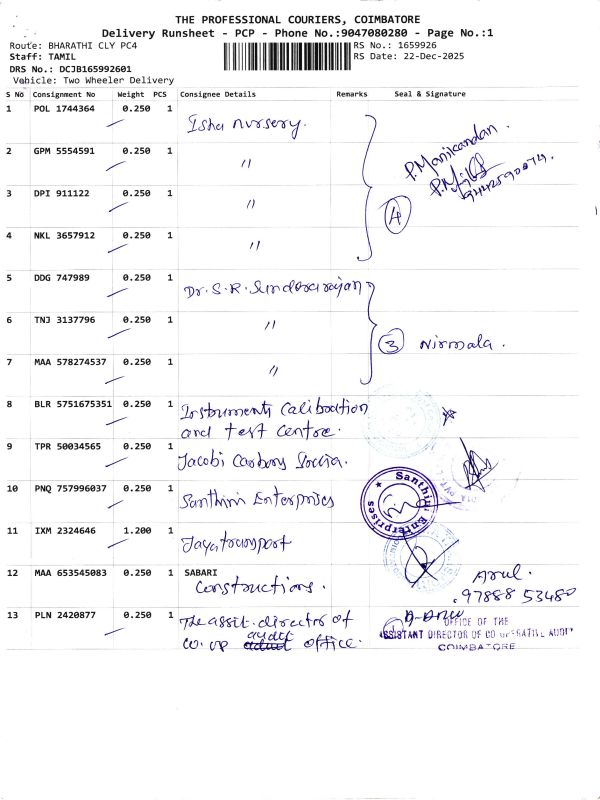 THE PROFESSIONAL COURIERS, COIMBATORE
Delivery Runsheet - PCP - Phone No.:9047080280 - Page No.:1
Route: BHARATHI CLY PC4 RS No.: 1659926
Staff: TAMIL RS Date: 22-Dec-2025
DRS No.: DCJB165992601
Vehicle: Two Wheeler Delivery
S No Consignment No Weight PCS Consignee Details Remarks Seal & Signature
1 POL 1744364 0.250 1 Isha nursery.
P. Manikandan.
2 GPM 5554591 0.250 1 "
3 DPI 911122 0.250 1 "
4
4 NKL 3657912 0.250 1 "
5 DDG 747989 0.250 1 Dr. S. R. Sundararajan
6 TNJ 3137796 0.250 1 "
3 Nirmala.
7 MAA 578274537 0.250 1 "
8 BLR 5751675351 0.250 1 Instruments Calibration
and test Centre.
9 TPR 50034565 0.250 1 Jacobi Carbons
10 PNQ 757996037 0.250 1 Santhini Enterprises
Santhini Enterprises
11 IXM 2324646 1.200 1 Jayatransport
12 MAA 653545083 0.250 1 SABARI
Constructions. Arul.
97888 53480
13 PLN 2420877 0.250 1 The assit. director of
co. op audit office.
OFFICE OF THE
ASSISTANT DIRECTOR OF CO OPERATIVE AUDIT
COIMBATORE